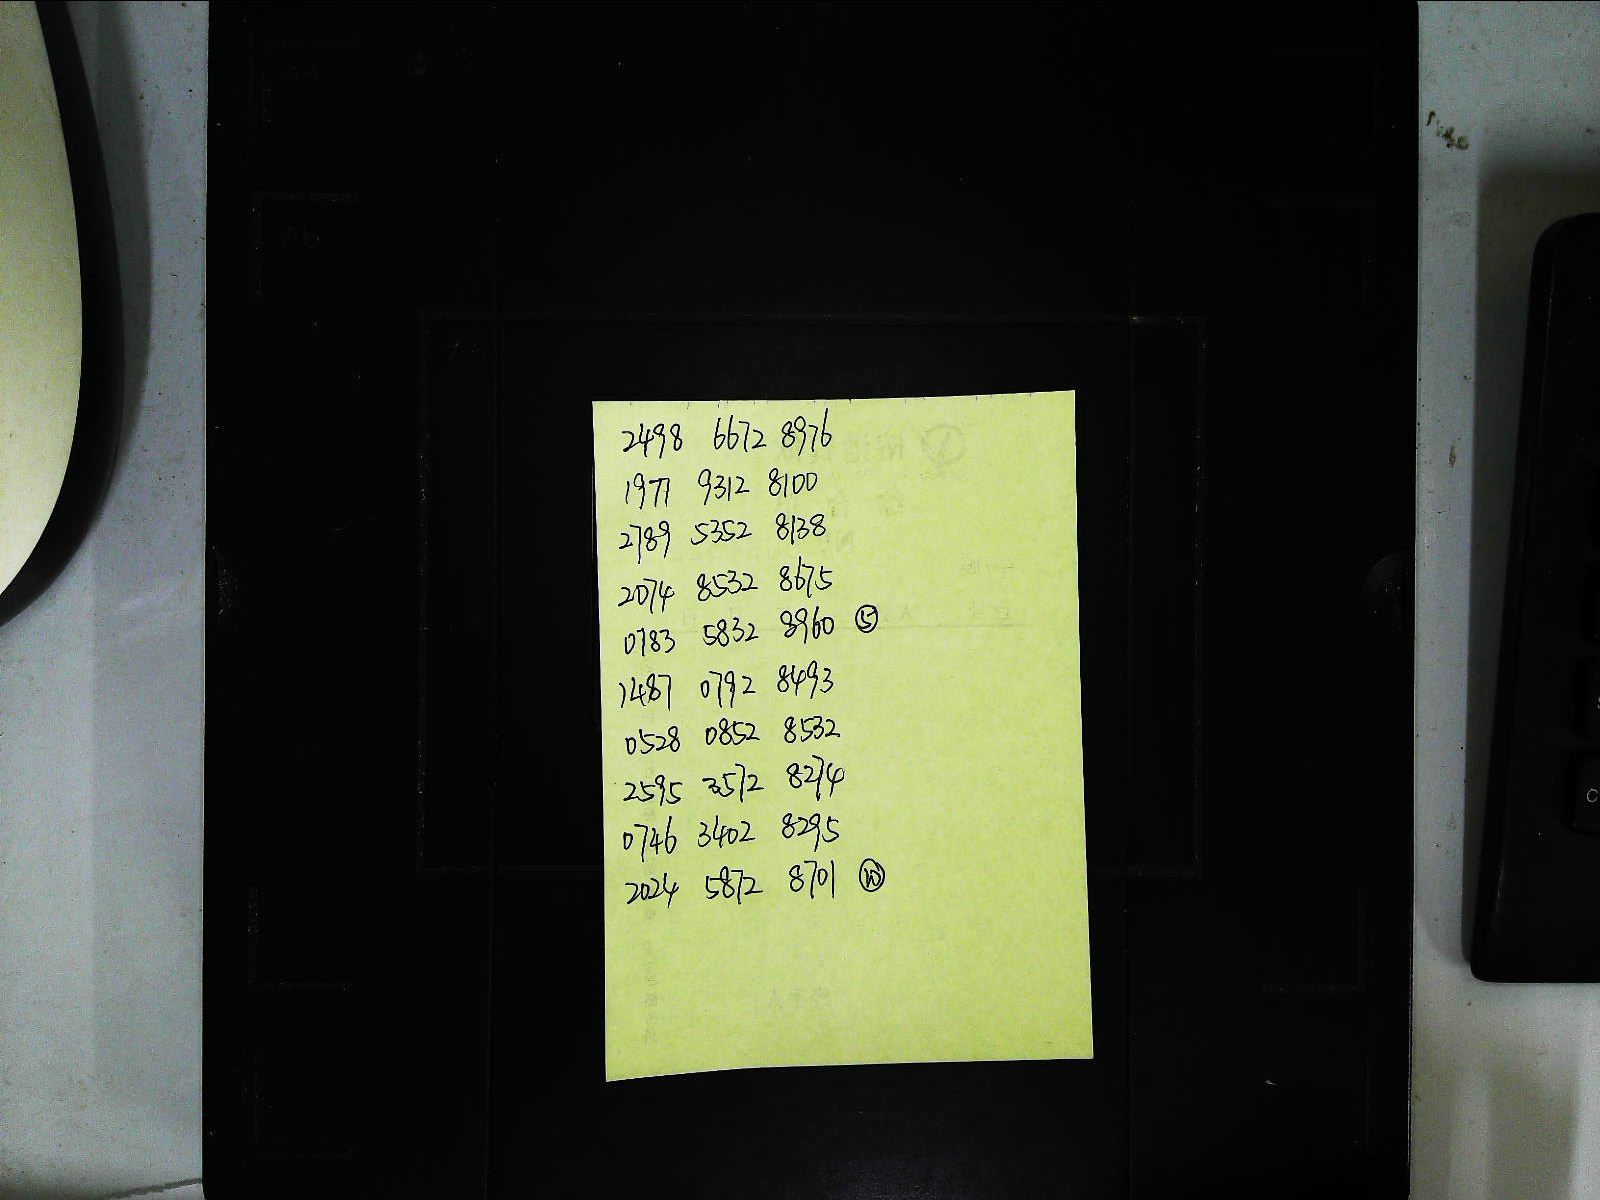 2498 6672 8976
1977 9312 8100
2789 5352 8138
2074 8532 8675
0783 5832 8960 ⑤
1487 0792 8493
0528 0852 8532
2595 3572 8274
0746 3402 8295
2024 5872 8701 ⑩